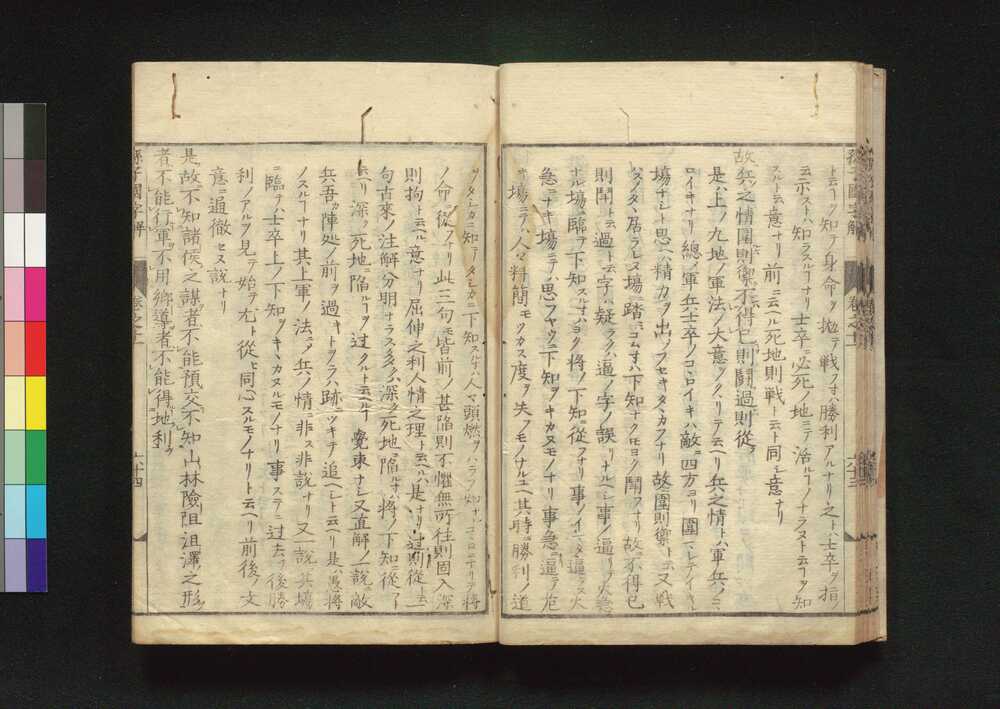 ト云フヿヲ知テ身命ヲ拋テ戦フ寸ハ勝利アルナリ之トハ士卒ヲ指
云ニホストハ知ラスルヿナリ士卒ニ必死ノ地ニテ活ルヿノナラスト云フヿヲ知
スルト云意ナリ前ニ云ヘル死地則戦ト云ト同シ意ナリ
故兵之情圍則禦不得已則鬪過則從
是ハ上ノ九地ノ軍法ノ大意ヲクヽリテ云ヘリ兵之情トハ軍兵ノコヽ
ロイキナリ總ノ軍兵士卒ノコヽロイキハ敵ニ四方ヨリ圍マレテイキ
場ナシト思ヘハ精力ヲ出シフセキタヽカフナリ故ニ圍則禦ト云又戦
ハスノタヽ居ラレヌ場ニ踏コムスハ下知ナクヒヨク鬪フナリ故ニ不得已
則鬪ト云過ト云字ハ疑ラクハ逼ノ字ノ誤リナルヘシ事ノ逼リヲ火急
ナル場ニ臨テ下知スルスハヨク將ノ下知ニ從フナリ事ノイマタ逼ラス火
急ニナキ場ニテハ思フヤウニ下知ヲキカヌモノナリ事急ニ逼テ危
キ場ニテハ人々料簡モクカス度ヲ失フモノナルユヘ其時ニ勝利ノ道
ヲタシカニ知テタシカニ下知スル寸ハ人々頭燃ヲハラフ如ナコヽロニナリテ將
ノ命ニ從フナリ此三句モ皆前ノ甚陷則不懼無所往則固入深
則拘ト云ヘル意ナリ屈伸之利人情之理ト云ヘルハ是ナリ過則從ト云
句古來ノ注解分明ナラス多クハ深ク死地ニ陷ル寸ハ將ノ下知ニ從フト
云ヘリ深ク死地ニ陷ルヿヲ過クルト云ヘルヿ覺束ナシ又直解ノ一説ニ敵
兵吾カ陣処ノ前ヲ過キトヲラハ跡ニツキテ追ヘシト云ヘリ是ハ愚將
ノスルヿナリ其上軍ノ法ニヲ兵ノ情ニ非ス非説ナリ又一説其場
ニ臨テハ士卒上ノ下知ヲキヽカヌルモノナリ事ステニ過去テ後勝
利ノアルヲ見テ始テ尤ト從ヒ同心スルモノナリト云ヘリ前後ノ文
意ニ通徹セス説ナリ
是故不知諸侯之謀者不能預交不知山林險阻沮澤之形
者不能行軍不用郷導者不能得地利
孫子國字解
卷之十一
六十四